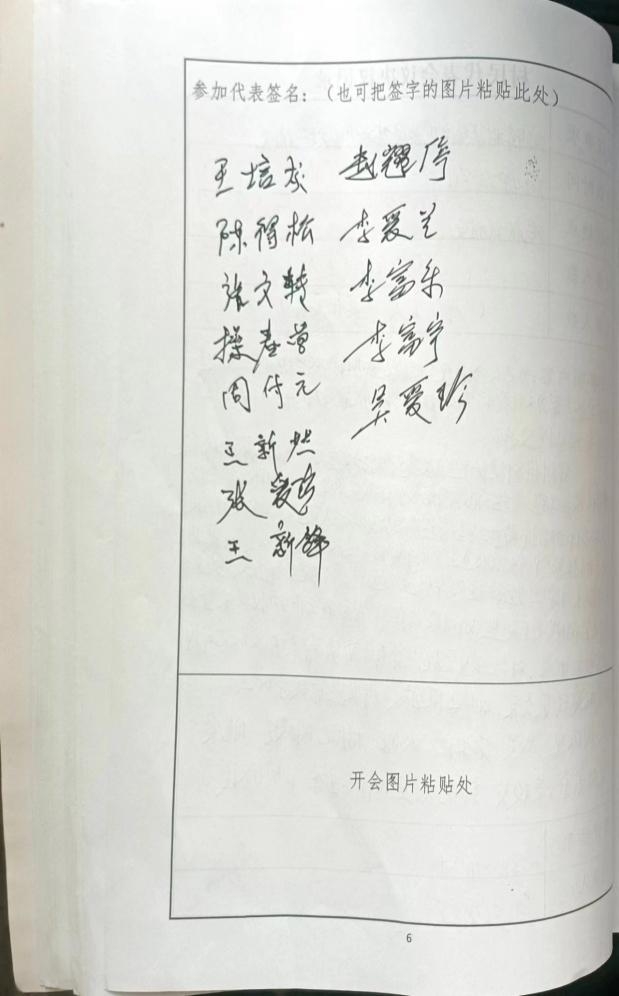 参加代表签名：（也可把签字的图片粘贴此处）
王培友 赵耀停
陈得松 李爱兰
张文转 李富乐
操春曾 李富宁
周付元 吴爱珍
王新然
张爱志
王新锋
开会图片粘贴处
6